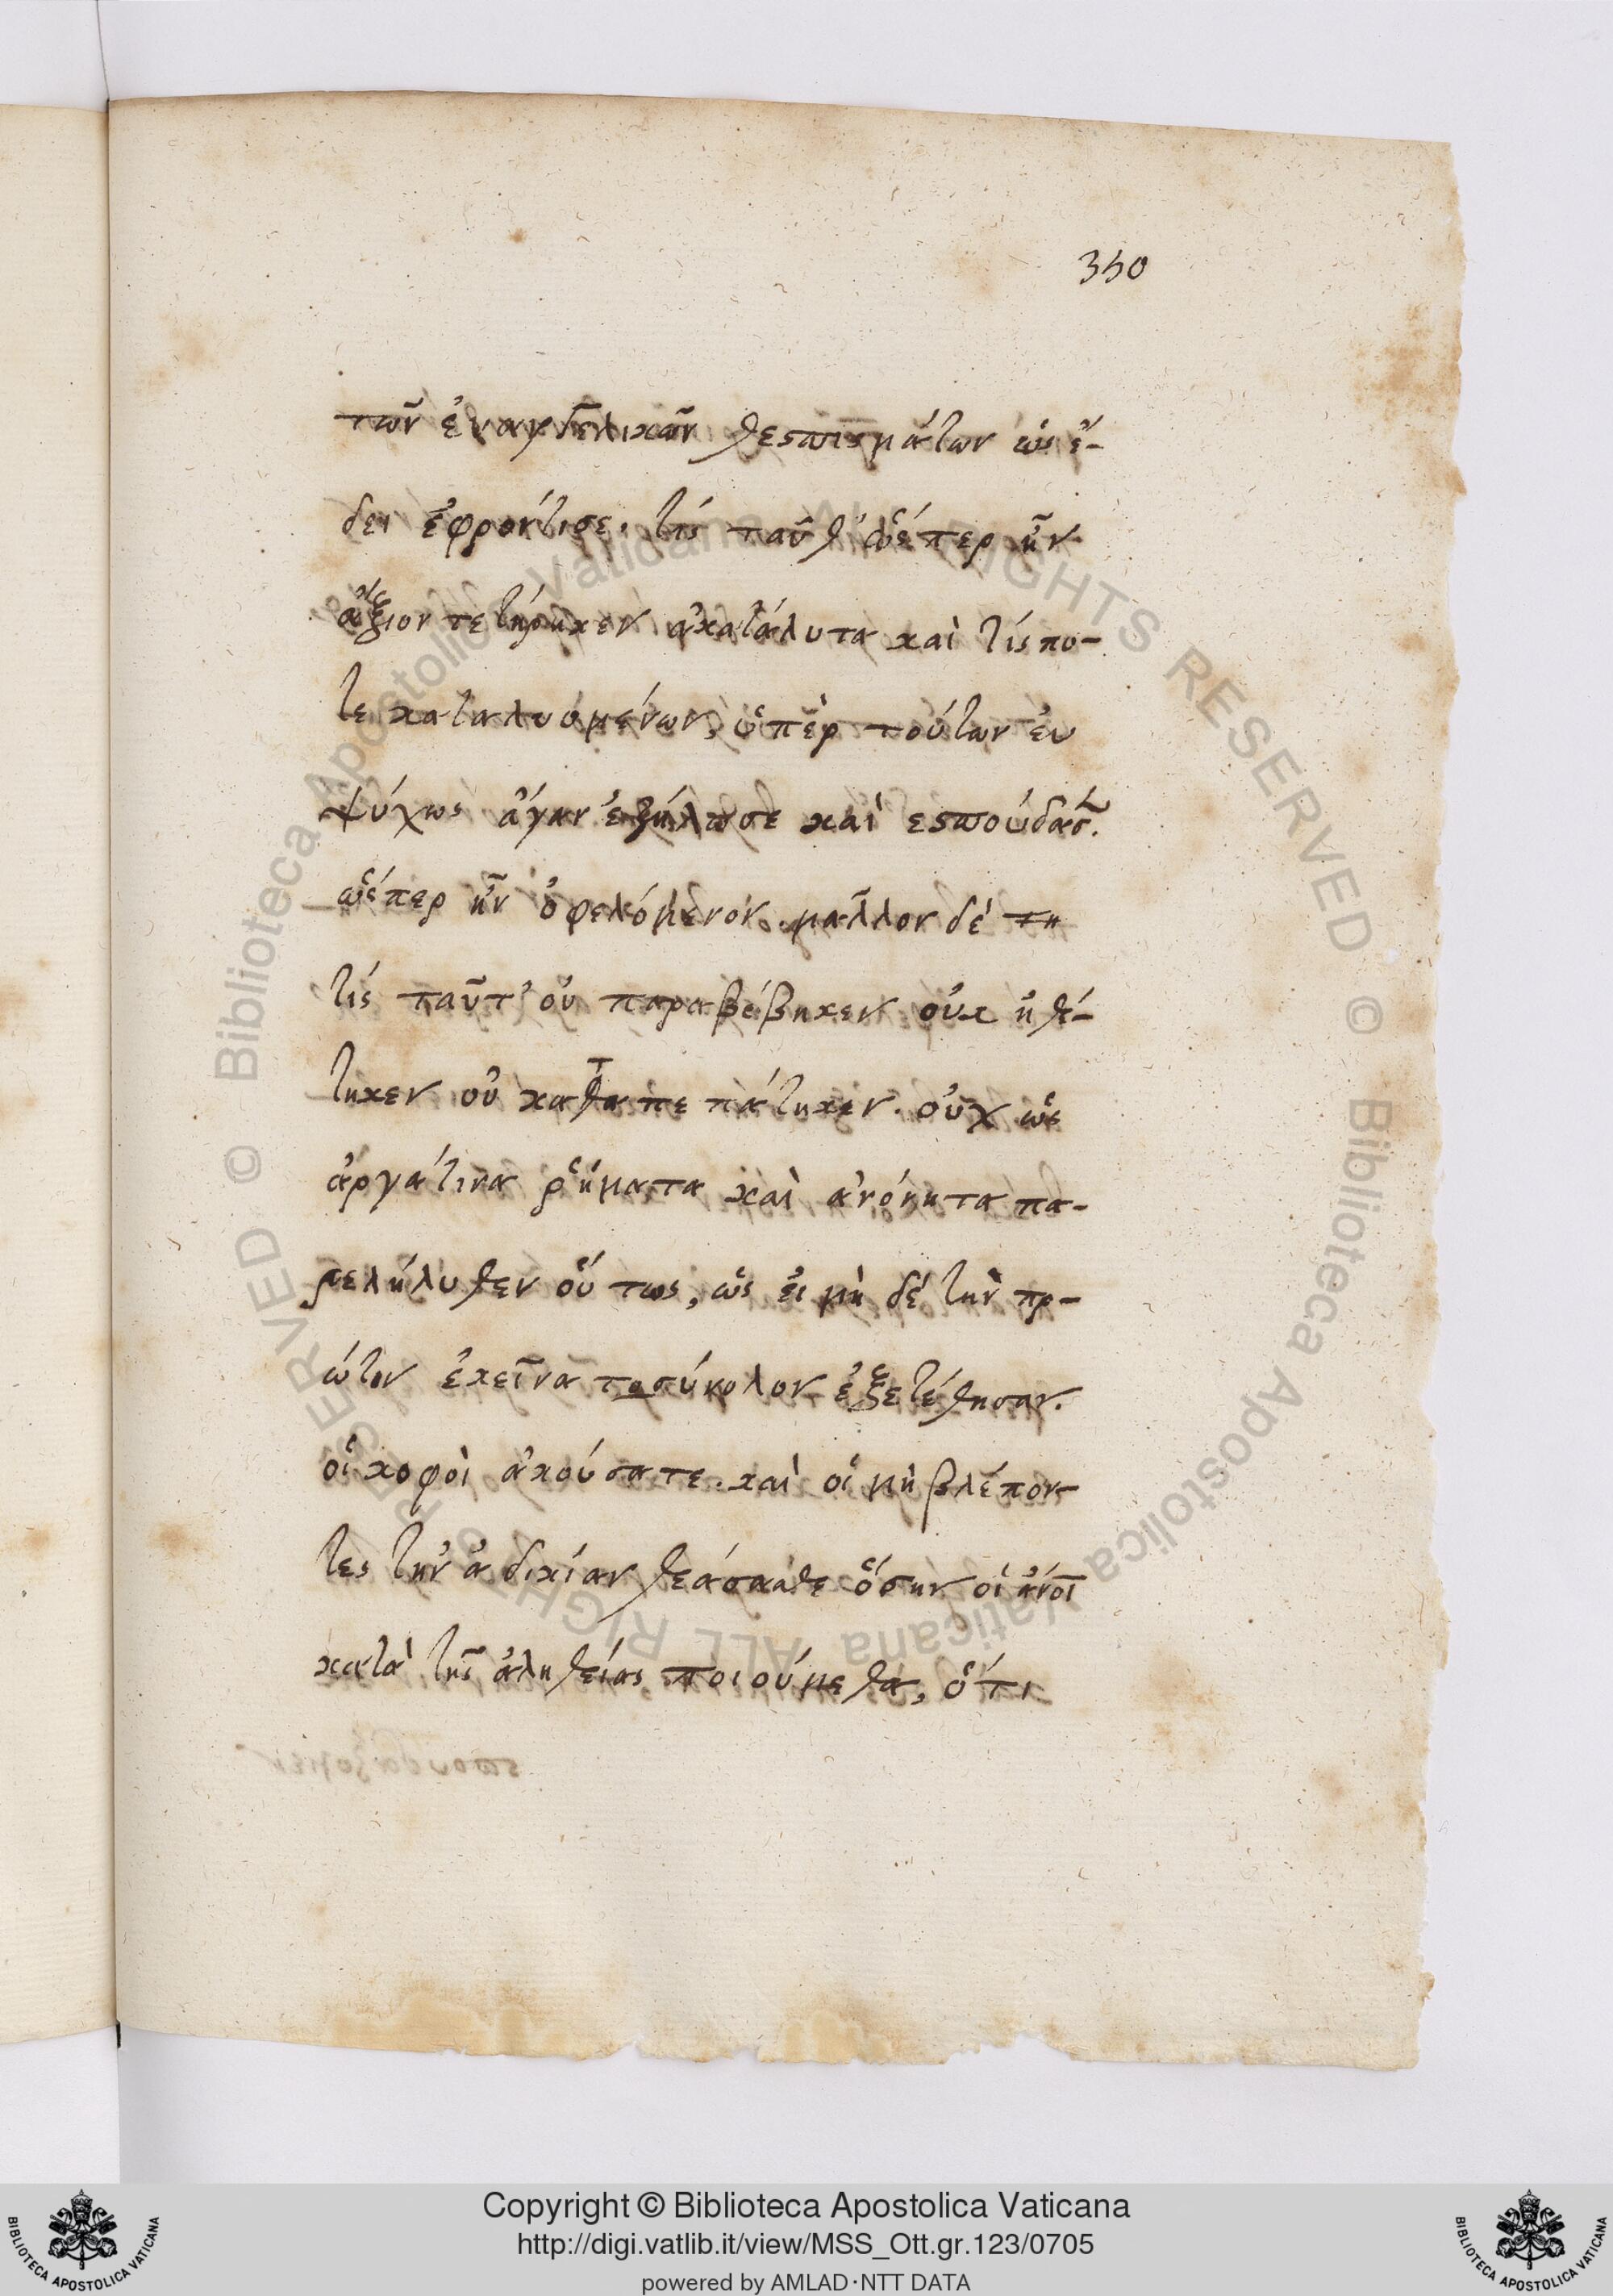 350
τῶν ἐυαγγελικῶν θεσπισμάτων ὡς ἔ-
δει ἐφρόντισε. τίς ταῦθ' ὥςπερ ἦν
ἄξιον τετήρηκεν ἀκατάλυτα καὶ τίς πο-
τε καταλυομένων, ὑπὲρ τούτων ἐυ
ψύχως ἄγαν ἐζήλωσε καὶ εσπούδασ.
ὥςπερ ἦν ὀφελόμενον. μᾶλλον δέ
τίς ταῦτ' οὐ παραβέβηκεν οὐκ ἠθέ-
τηκεν οὐ καταπεπάτηκεν. οὐχ ὡς
ἀργά τινα ῥήματα καὶ ἀνόητα πα-
ρελήλυθεν οὕτως, ὡς ἐι μὴ δέ τὴν πρ-
ώτην ἐκεῖνα τοσύνολον ἐξετέθησαν.
οἱ κοφοὶ ἀκούσατε. καὶ οἱ μὴ βλέπον-
τες τὴν ἀδικίαν θεάσασθε ὅσην οἱ ἄνοι
κατὰ τῆς ἀληθείας ποιούμεθα, ὅτι
Copyright © Biblioteca Apostolica Vaticana
http://digi.vatlib.it/view/MSS_Ott.gr.123/0705
powered by AMLAD·NTT DATA
BIBLIOTECA APOSTOLICA VATICANA
BIBLIOTECA APOSTOLICA VATICANA
© Biblioteca Apostolica Vaticana ALL RIGHTS RESERVED © Biblioteca Apostolica Vaticana ALL RIGHTS RESERVED